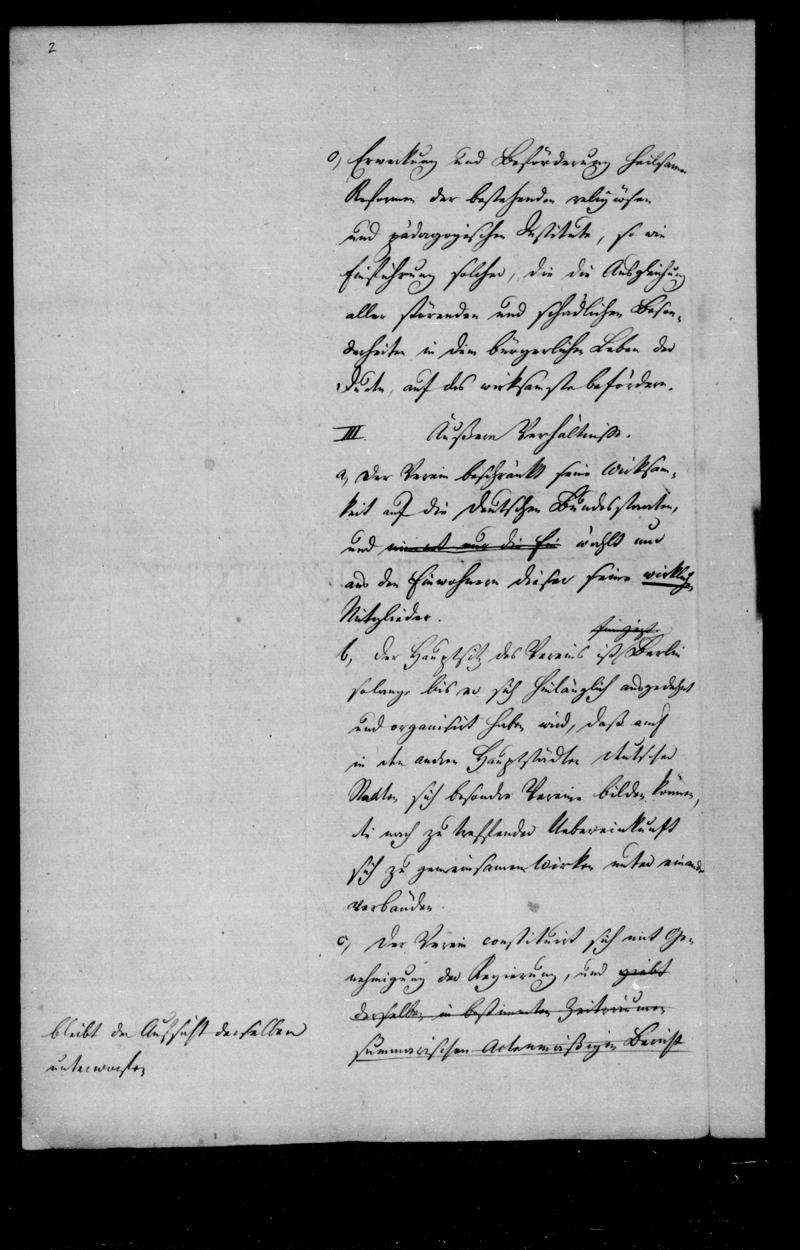 2
c, Erweckung und Beförderung heilsamer
Reformen der bestehenden religiösen
und pädagogischen Institute, so wie
Einführung solcher, die die Ausgleichung
aller störenden und schädlichen Beson-
derheiten in dem bürgerlichen Leben der
Juden, auf das wirksamste befördern.
III. Äußere Verhältnisse.
a, Der Verein beschränkt seine Wirksam-
keit auf die deutschen Bundesstaaten,
und nimmt nur die Ein wählt nur
aus den Einwohnern dieser seine wirklichen
Mitglieder.
b, der Hauptsitz des Vereins ist Berlin
solange bis er sich hinlänglich ausgedehnt
und organisirt haben wird, daß auch
in den andren Hauptstädten deutscher
Staaten sich besondre Vereine bilden können,
die nach zu treffender Uebereinkunft
sich zu gemeinsamen Wirken unter einander
verbänden.
c, Der Verein constituirt sich mit Ge-
nehmigung der Regierung, und giebt
derselben in bestimmten Zeiträumen
summarischen Actenmäßigen Bericht
bleibt der Aufsicht derselben
unterworfen